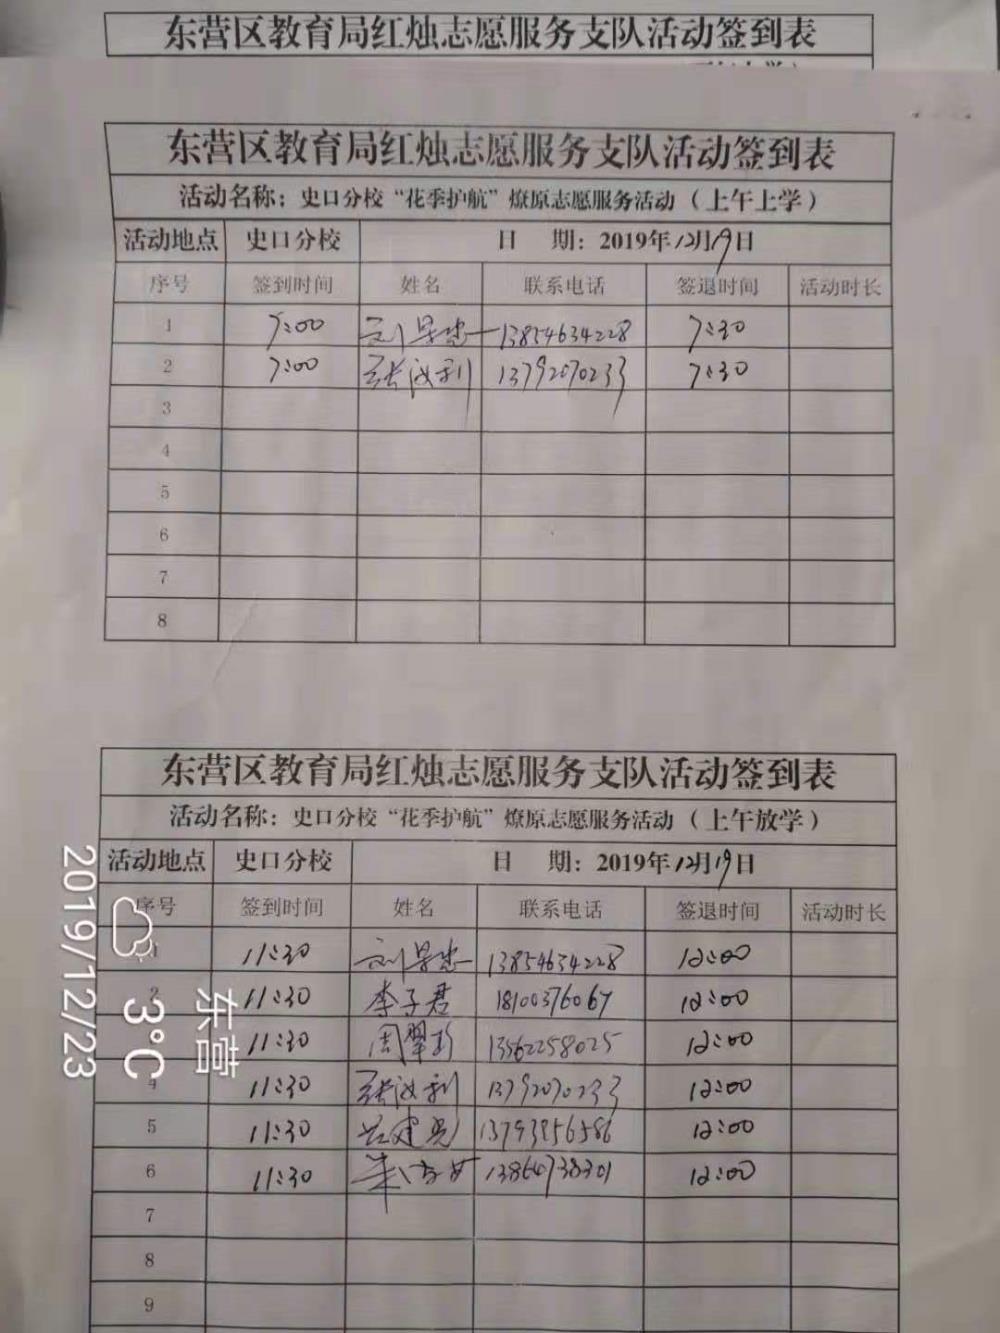 东营区教育局红烛志愿服务支队活动签到表
东营区教育局红烛志愿服务支队活动签到表
活动名称：史口分校“花季护航”燎原志愿服务活动（上午上学）
活动地点 史口分校 日 期：2019年12月19日
序号 签到时间 姓名 联系电话 签退时间 活动时长
1 7:00 刘景忠 13854634228 7:30
2 7:00 张汝利 13792070233 7:30
3
4
5
6
7
8
东营区教育局红烛志愿服务支队活动签到表
活动名称：史口分校“花季护航”燎原志愿服务活动（上午放学）
活动地点 史口分校 日 期：2019年12月19日
序号 签到时间 姓名 联系电话 签退时间 活动时长
1 11:30 刘景忠 13854634228 12:00
2 11:30 李子君 18100376067 12:00
11:30 周翠珍 13562258025 12:00
4 11:30 张汝利 13792070233 12:00
5 11:30 建亮 13793856586 12:00
6 11:30 朱 13864738301 12:00
7
8
9
东营
3°C
2019/12/23